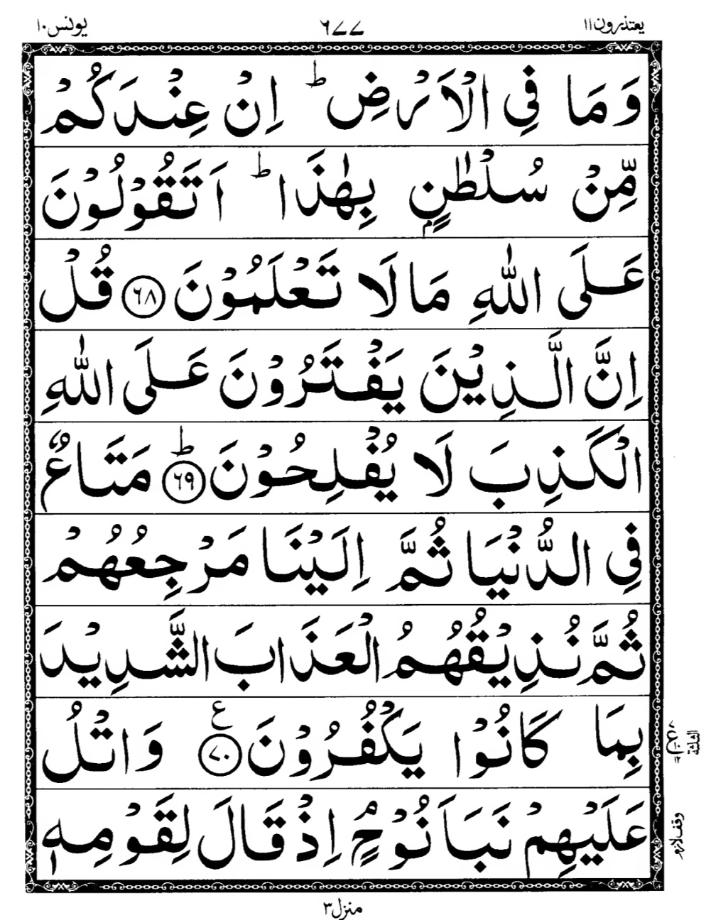 یعتذرون۱۱ ٦٧٧ یونس۱۰
وَمَا فِي الْاَرْضِ ؕ اِنْ عِنْدَكُمْ
مِّنْ سُلْطٰنٍۭ بِهٰذَا ؕ اَتَقُوْلُوْنَ
عَلَى اللّٰهِ مَالَا تَعْلَمُوْنَ ﴿٦٨﴾ قُلْ
اِنَّ الَّذِيْنَ يَفْتَرُوْنَ عَلَى اللّٰهِ
الْكَذِبَ لَا يُفْلِحُوْنَ ؕ﴿٦٩﴾ مَتَاعٌ
فِي الدُّنْيَا ثُمَّ اِلَيْنَا مَرْجِعُهُمْ
ثُمَّ نُذِيْقُهُمُ الْعَذَابَ الشَّدِيْدَ
بِمَا كَانُوْا يَكْفُرُوْنَ ﴿٧٠﴾ ع وَاتْلُ
عَلَيْهِمْ نَبَاَ نُوْحٍ ۘ اِذْ قَالَ لِقَوْمِهٖ
وقف لازم
منزل۳